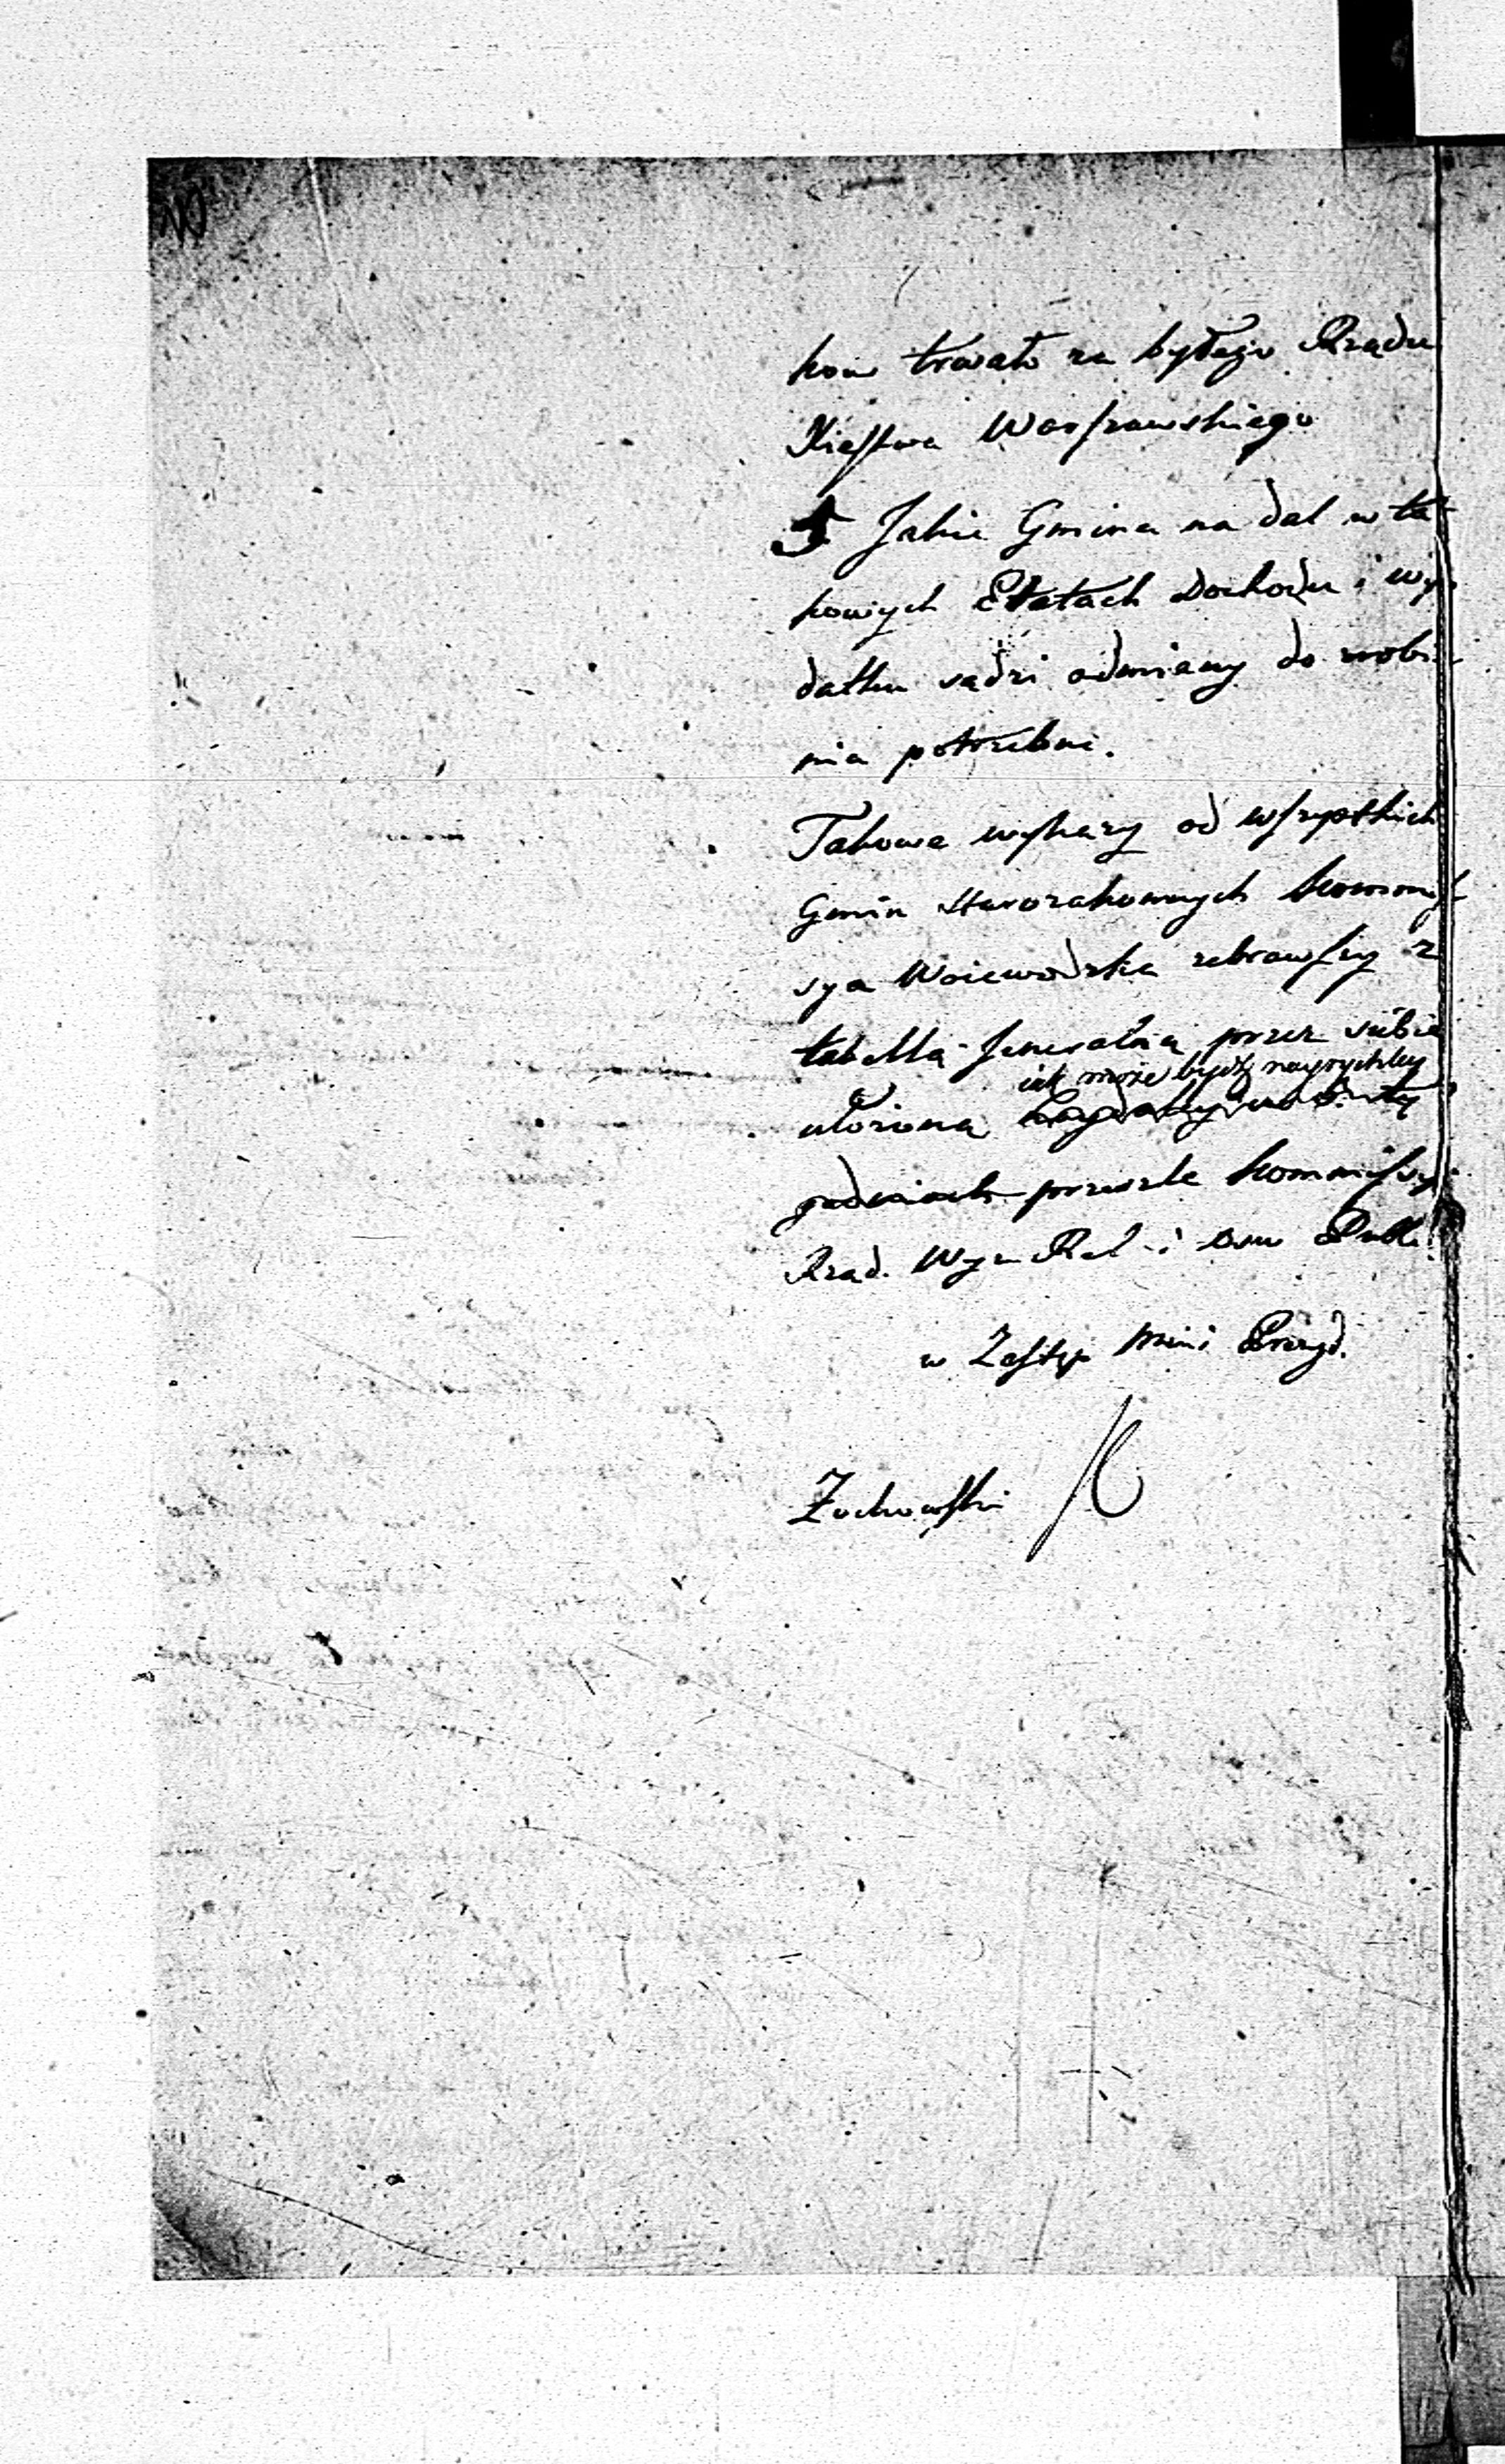 kow trwało za byłego Rządu
Xięstwa Warszawskiego
5 Jakie Gmina na dal w ta-
kowych Etatach dochodu i wy-
datku sądzi odmiany do zrobie-
nia potrzebne.
Takowe wykazy od wszystkich
Gmin Starozakonnych Kommis-
sya Woiewodzka zebrawszy z
tabellą Jeneralną przez siebie
iak może bydź nayrychley
ułożoną
prześle Kommissyi
Rząd. Wyz. Rel. i Ośw Publi.
w Zastęp Mini Prezyd.
Żochowski